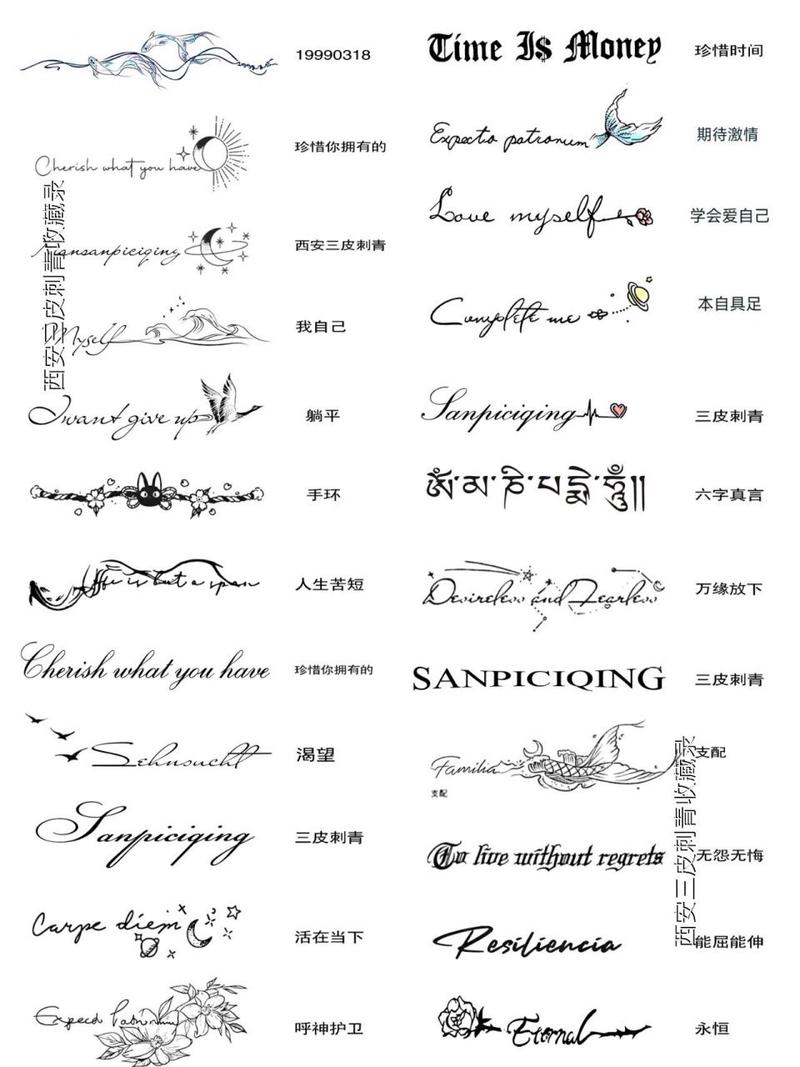 19990318
Cherish what you have
珍惜你拥有的
Xiansanpiciqing
西安三皮刺青
Myself
我自己
I want give up
躺平
手环
life is but a span
人生苦短
Cherish what you have
珍惜你拥有的
Sehnsucht
渴望
Sanpiciqing
三皮刺青
Carpe diem
活在当下
Expecd
呼神护卫
西安三皮刺青收藏录
Time I$ Money
珍惜时间
Expecto patronum
期待激情
Love myself
学会爱自己
Complete me
本自具足
Sanpiciqing
三皮刺青
ༀ་མ་ཎི་པདྨེ་ཧཱུྃ།།
六字真言
Desireless and Fearless
万缘放下
SANPICIQING
三皮刺青
Familia
支配
支配
To live without regrets
无怨无悔
Resiliencia
能屈能伸
Eternal
永恒
西安三皮刺青收藏录